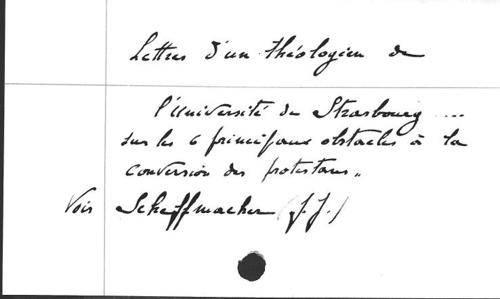 Lettres d'un théologien de
l'Université de Strasbourg ....
sur les 6 principaux obstacles à la
conversion des protestans„
Voir Scheffmacher (J.J.)